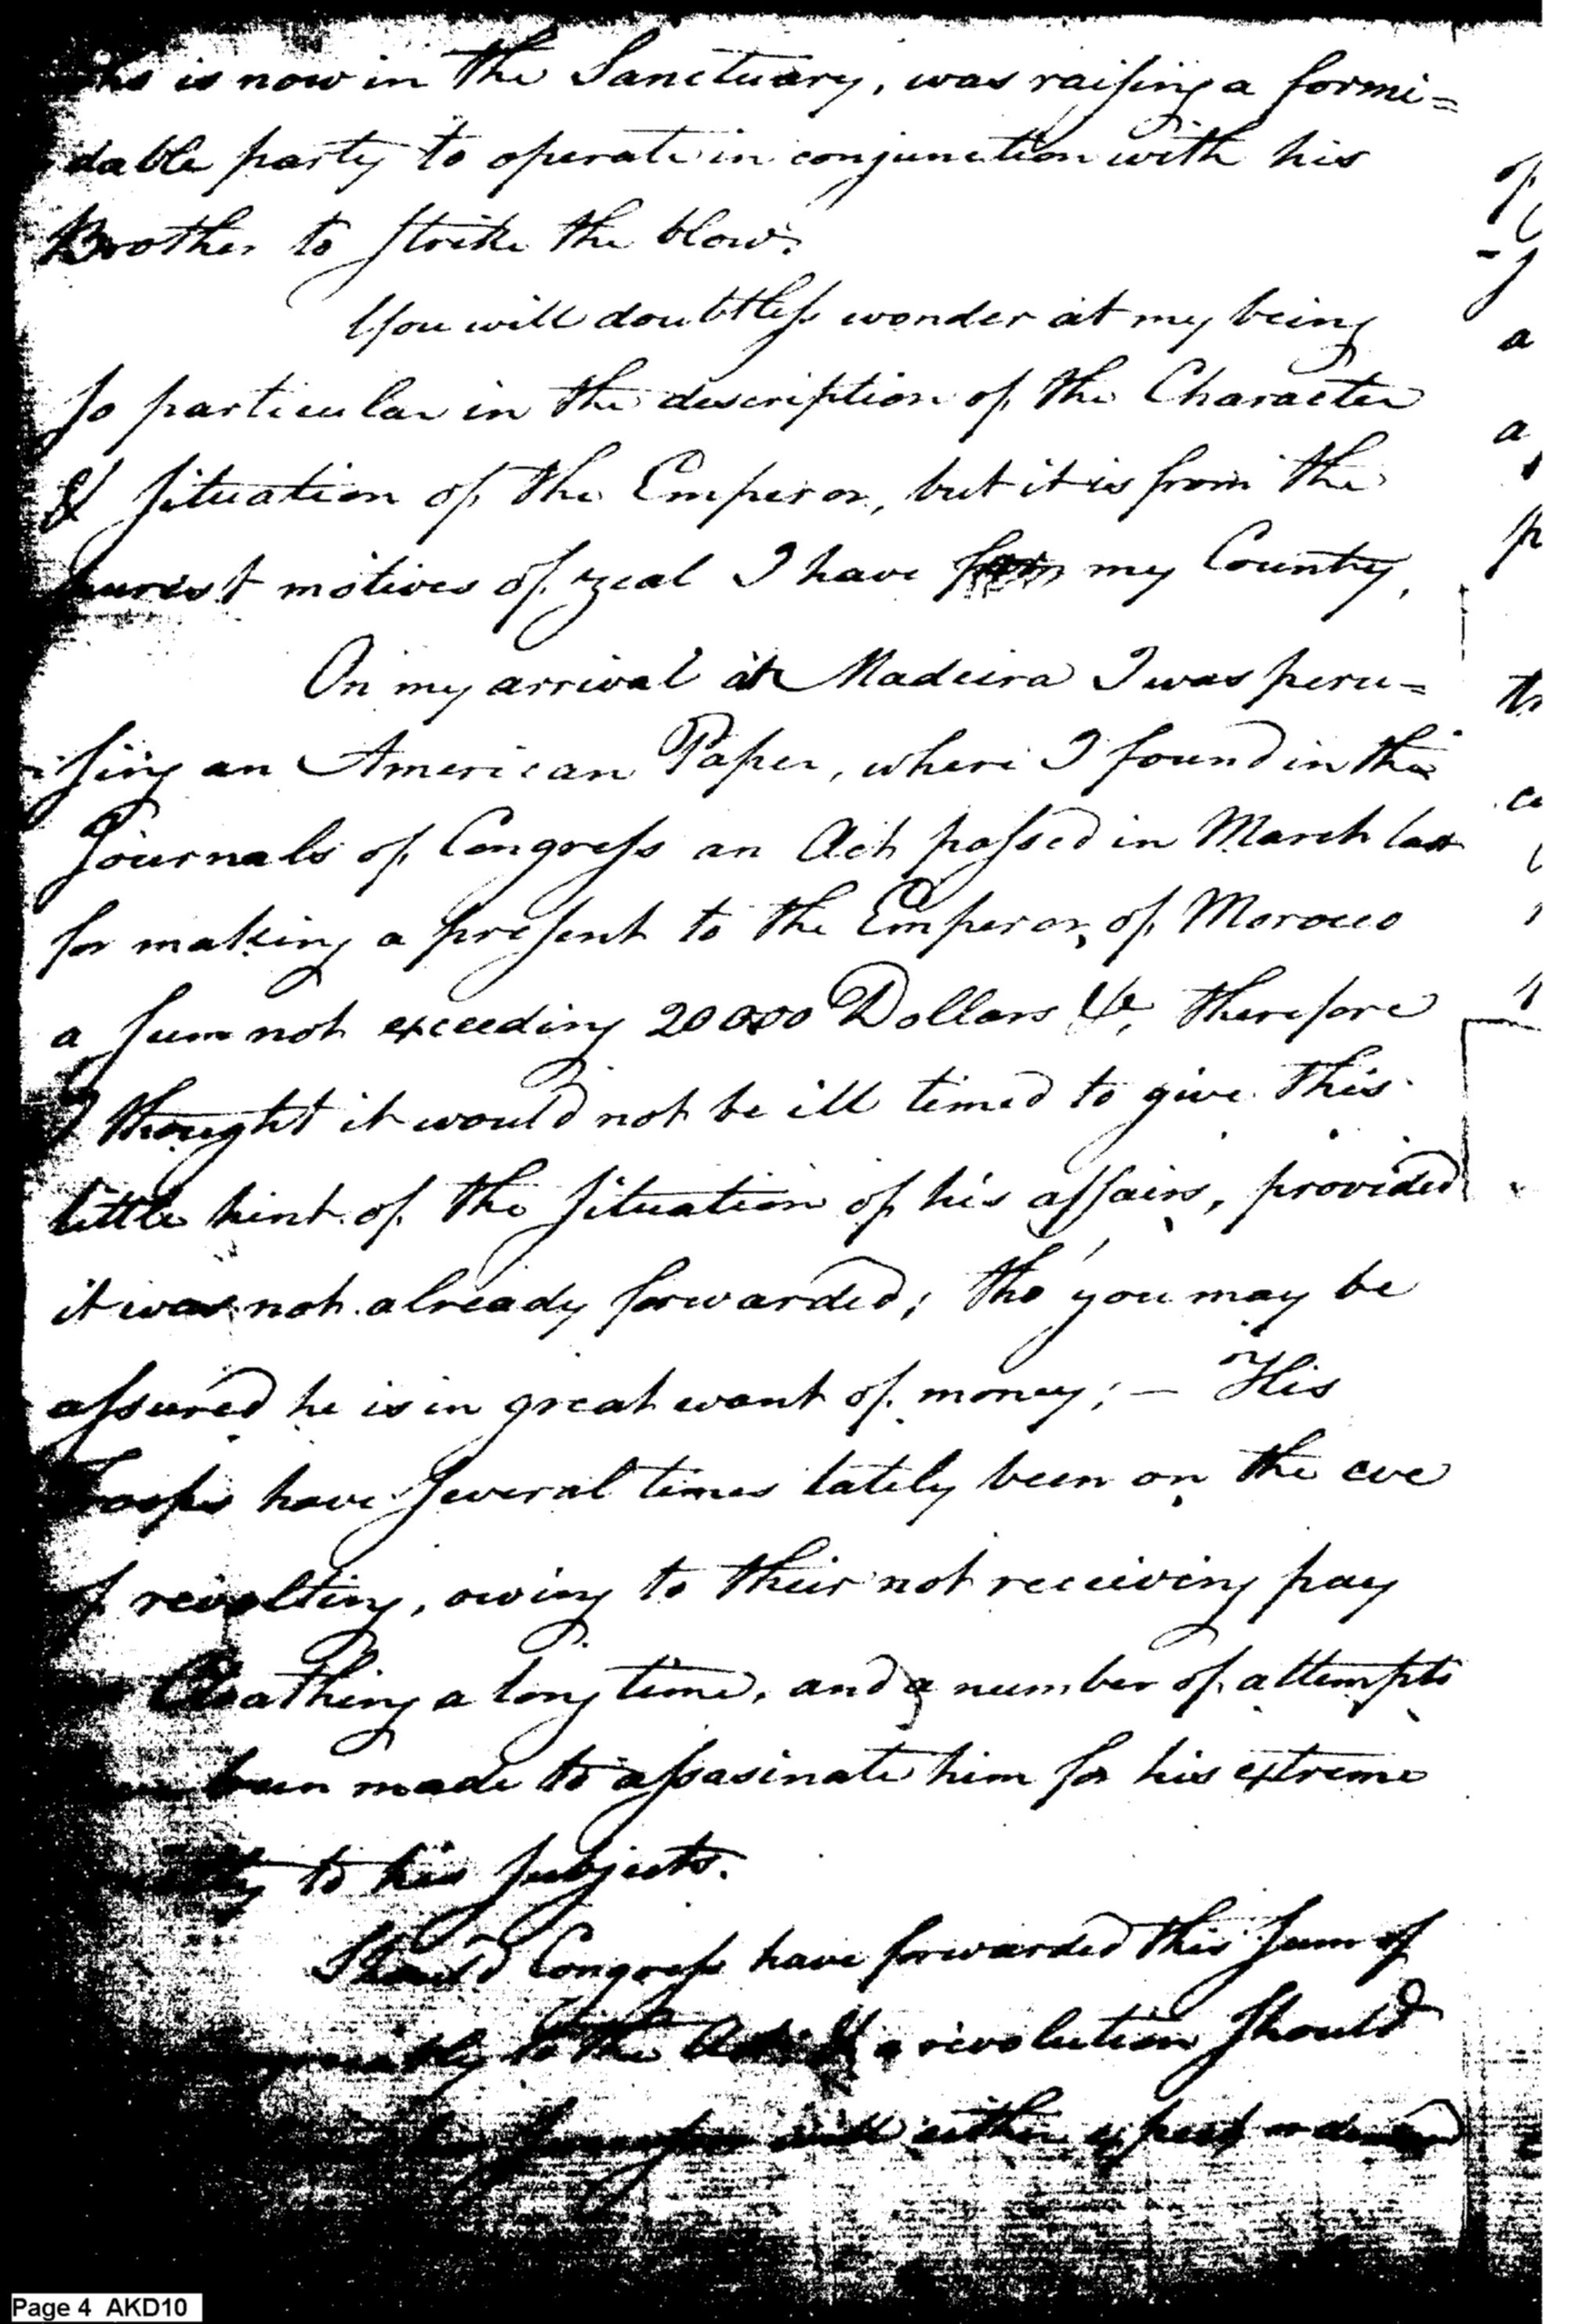 who is now in the Sanctuary, was raising a formi=
dable party to operate in conjunction with his
Brother to strike the blow.
You will doubtless wonder at my being
so particular in the description of the Character
& situation of the Emperor, but it is from the
purest motives of zeal I have for my County,
On my arrival at Madeira I was peru=
=sing an American Paper, where I found in the
Journals of Congress an Act passed in March last
for making a present to the Emperor, of Morocco
a sum not exceeding 20000 Dollars &c, therefore
I thought it would not be ill timed to give this
little hint of the situation of his affairs, provided
it was not already forwarded; tho' you may be
assured he is in great want of money; — His
Troops have several times lately been on the eve
of revolting, owing to their not receiving pay
Cloathing a long time, and a number of attempts
been made to assasinate him for his extreme
to his subjects.
Should Congress have forwarded this sum of
to the a revolution should
will either expect or demand
Page 4 AKD10